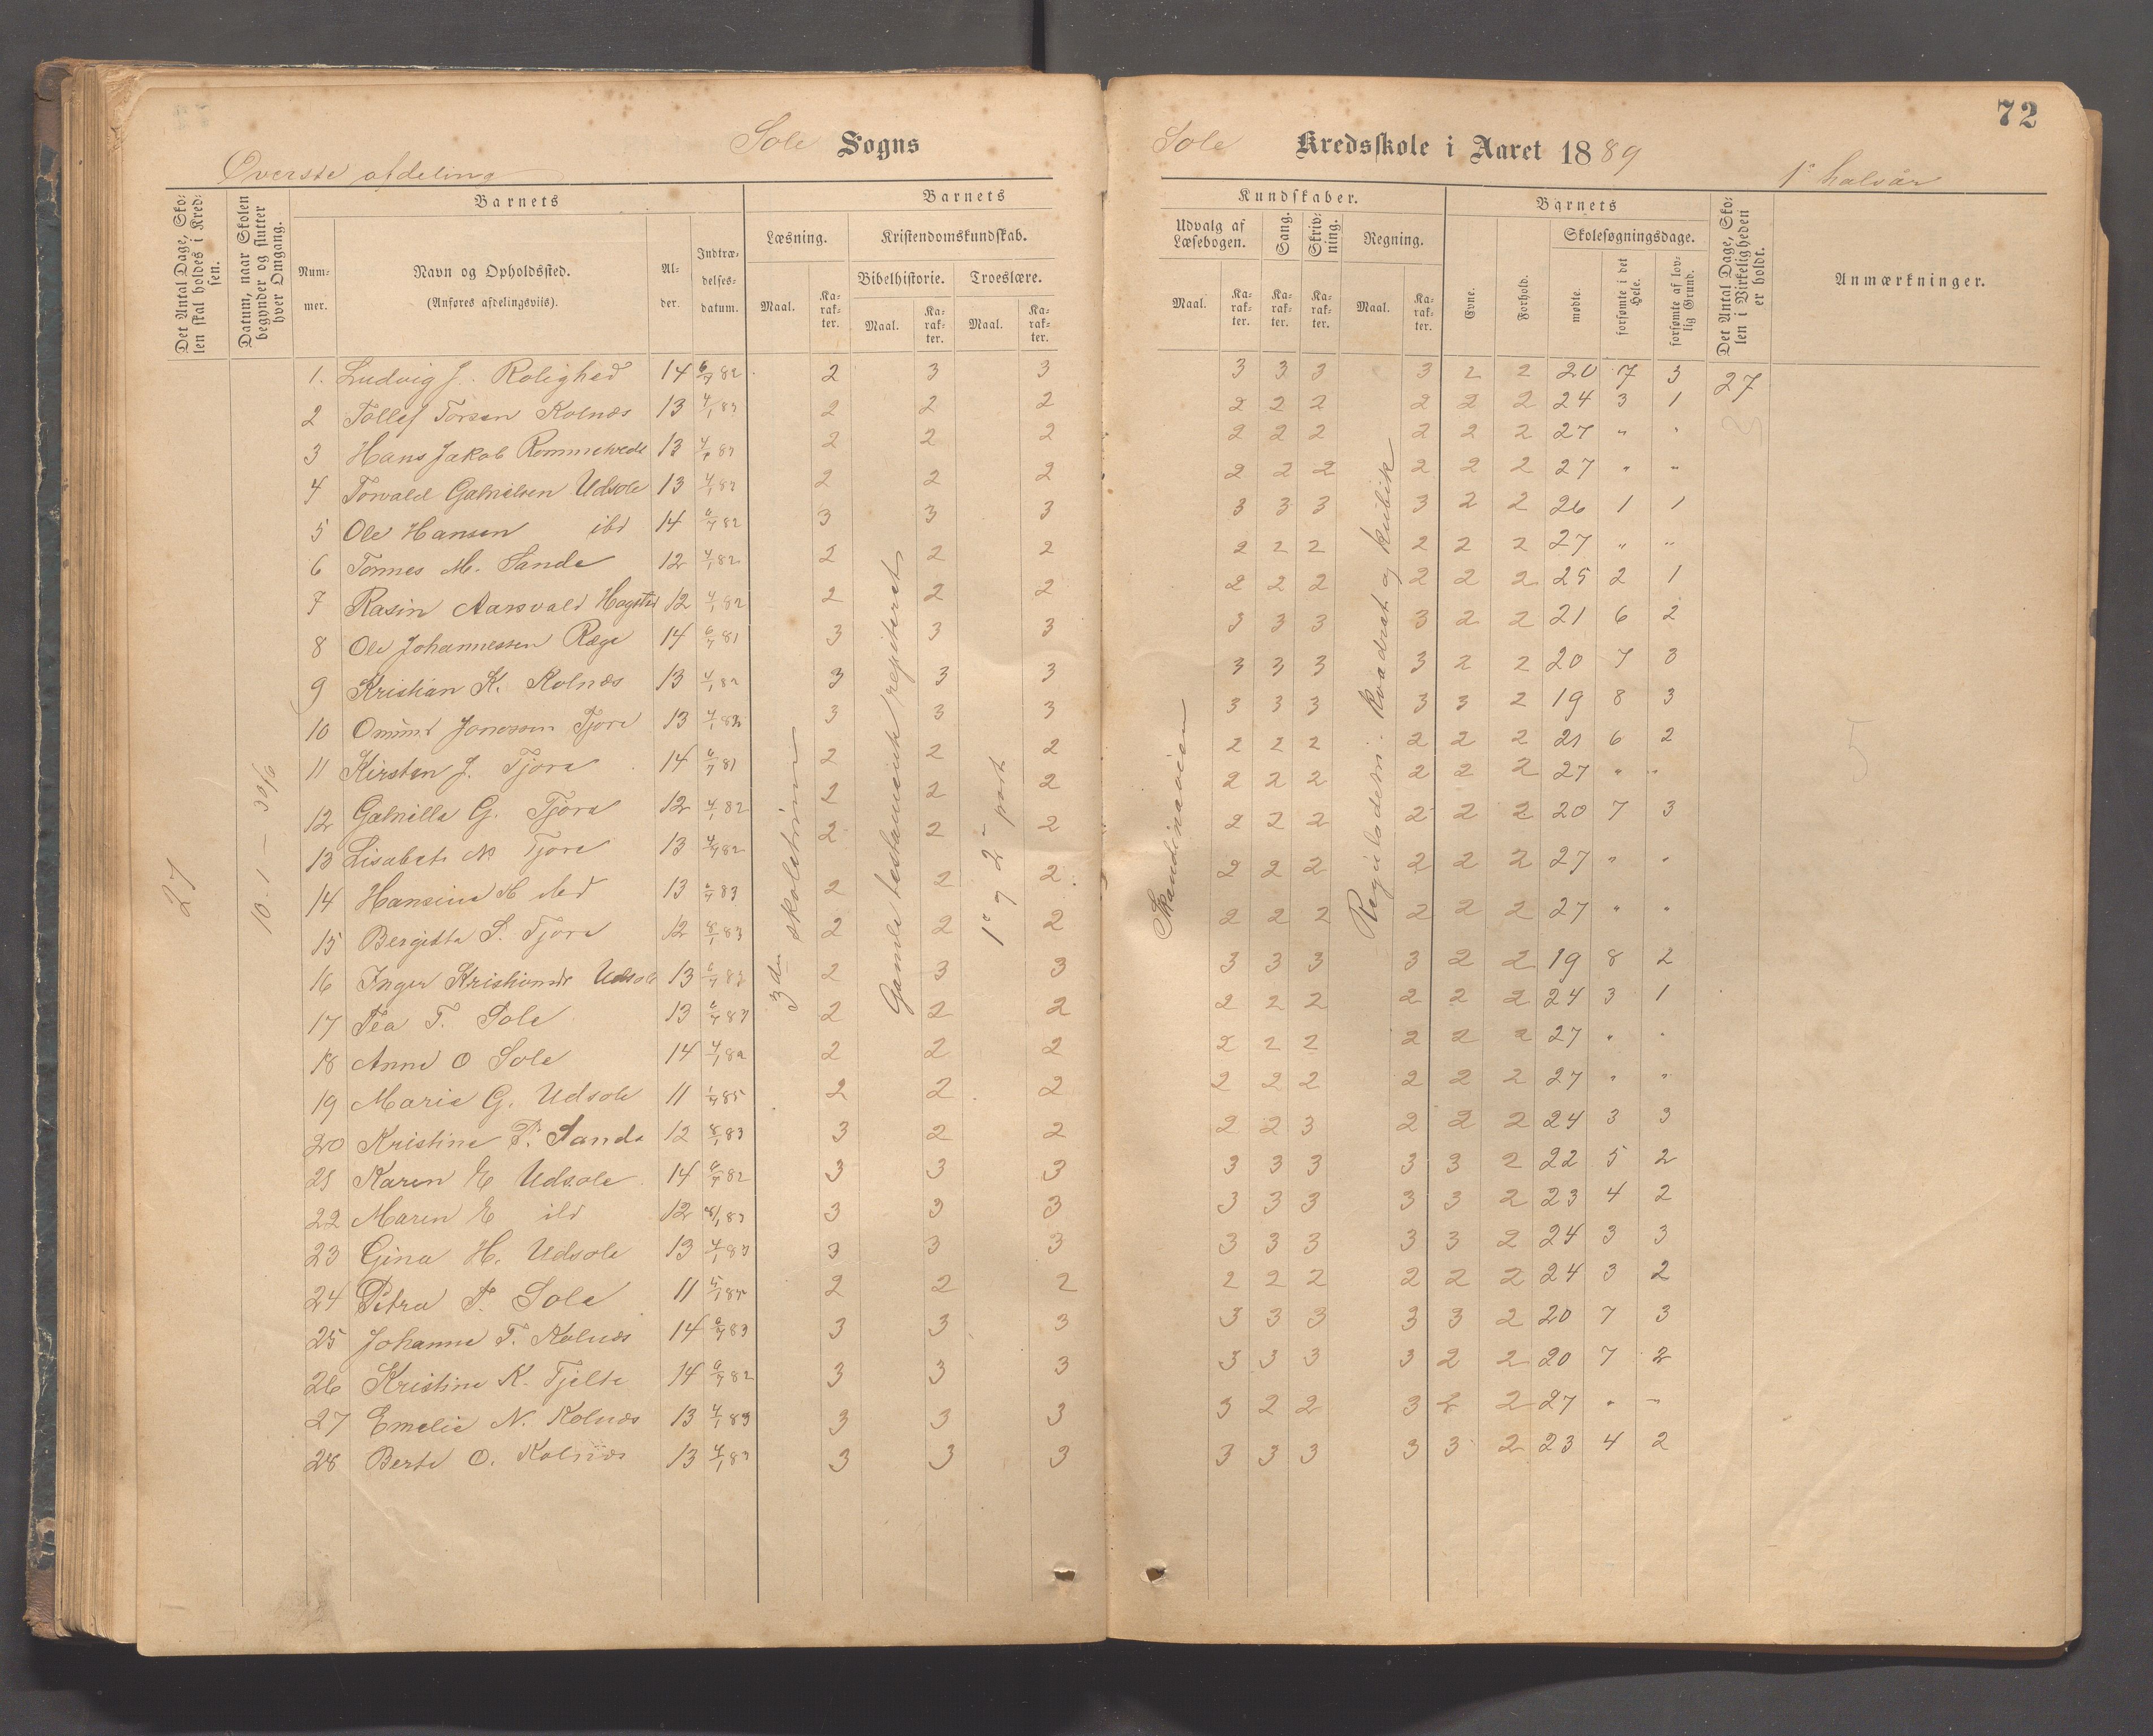 72
Sole Sogns
Sole Kredsskole i Aaret 1889
Øverste afdeling
1e halvår
Det Antal Dage, Skolen skal holdes i Kredsen.
Datum, naar Skolen begynder og slutter hver Omgang.
Barnets
Nummer.
Navn og Opholdssted.
(Anføres afdelingsviis).
Alder.
Indtrædelsesdatum.
Barnets
Læsning.
Maal.
Karakter.
Kristendomskundskab.
Bibelhistorie.
Maal.
Karakter.
Troeslære.
Maal.
Karakter.
Kundskaber.
Udvalg af Læsebogen.
Maal.
Karakter.
Sang.
Karakter.
Skrivning.
Karakter.
Regning.
Maal.
Karakter.
Barnets
Evne.
Forhold.
Skolesøgningsdage.
mødte.
forsømte i det Hele.
forsømte af lovlig Grund.
Det Antal Dage, Skolen i Virkeligheden er holdt.
Anmærkninger.
27
10.1 – 30/6
3die skoletrin
Gamle testamente repeteret
1e og 2n part
Skandinavien
Reguladetri. Kvadrat og kubik
1. Ludvig J. Rolighed 14 6/7 82 2 3 3 3 3 3 3 2 2 20 7 3 27
2 Tollef Torsen Kolnæs 13 4/1 83 2 2 2 2 2 2 2 2 2 24 3 1
3 Hans Jakob 13 2 2 2 2 2 2 2 2 2 27 " "
4 Torvald Gabrielsen Udsole 13 4/1 83 2 2 2 2 2 2 2 2 2 27 " "
5 Ole Hansen ibd 14 6/7 82 3 3 3 3 3 3 3 2 2 26 1 1
6 Tønnes M. Sande 12 4/1 82 2 2 2 2 2 2 2 2 2 27 " "
7 Rasin Aarsvald 12 4/1 82 2 2 2 2 2 2 2 2 2 25 2 1
8 Ole Johannessen Ræge 14 6/7 81 3 3 3 3 3 3 3 2 2 21 6 2
9 Kristian K. Kolnæs 13 4/1 82 3 3 3 3 3 3 3 2 2 20 7 3
10 Omund Jonassen Tjora 13 4/1 82 3 3 3 3 3 3 3 3 2 19 8 3
11 Kirsten J. Tjora 14 6/7 81 2 2 2 2 2 2 2 2 2 21 6 2
12 Gabriella G. Tjora 12 4/1 82 2 2 2 2 2 2 2 2 2 27 " "
13 Lisabet N Tjora 13 82 2 2 2 2 2 2 2 2 2 20 7 3
14 Hansine N ibd 13 6/7 83 2 2 2 2 2 2 2 2 2 27 " "
15 Bergitta S. Tjora 12 8/1 83 2 2 2 2 2 2 2 2 2 27 " "
16 Inger Udsole 13 2 3 3 3 3 3 3 2 2 19 8 2
17 Tea T. Sole 13 6/7 83 2 2 2 2 2 2 2 2 2 24 3 1
18 Anne O Sole 14 4/1 82 2 2 2 2 2 2 2 2 2 27 " "
19 Marie G. Udsole 11 1/7 85 2 2 2 2 2 2 2 2 2 27 " "
20 Kristine P. Sande 12 8/1 83 3 2 2 2 2 3 2 2 2 24 3 3
21 Karen E Udsole 14 6/7 82 3 3 3 3 3 3 3 3 2 22 5 2
22 Maren E ibd 12 8/1 83 3 3 3 3 3 3 3 3 2 23 4 2
23 Gina H. Udsole 13 4/1 83 3 3 3 3 3 3 3 3 2 24 3 3
24 Petra T. Sole 11 5/1 85 2 2 2 2 2 2 2 2 2 24 3 2
25 Johanne T. Kolnæs 14 6/7 83 3 3 3 3 3 3 3 3 2 20 7 3
26 Kristine K. Tjelta 14 6/7 82 3 3 3 3 3 3 3 2 2 20 7 2
27 Emelie N. Kolnæs 13 4/1 83 3 3 3 3 2 2 3 2 2 27 " "
28 Berte O. Kolnæs 13 4/1 83 3 3 3 3 3 3 3 3 2 23 4 2
5